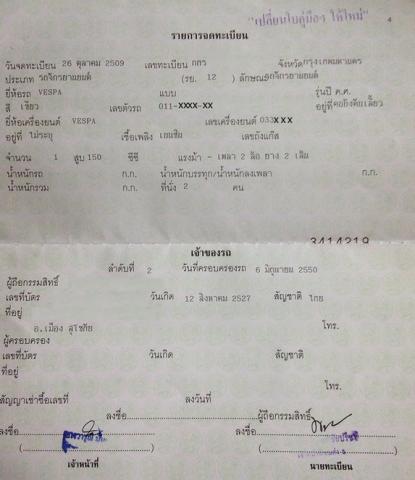 "เปลี่ยนใบคู่มือฯ ให้ใหม่"
4
รายการจดทะเบียน
วันจดทะเบียน 26 ตุลาคม 2509 เลขทะเบียน กกร จังหวัดกรุงเทพมหานคร
ประเภท รถจักรยานยนต์ (รย. 12 ) ลักษณะรถจักรยานยนต์
ยี่ห้อรถ VESPA แบบ รุ่นปี ค.ศ.
สี เขียว เลขตัวรถ 011-XXXX-XX อยู่ที่
ยี่ห้อเครื่องยนต์ VESPA เลขเครื่องยนต์ 033XXX
อยู่ที่ ไม่ระบุ เชื้อเพลิง เบนซิน เลขถังแก๊ส
จำนวน 1 สูบ 150 ซีซี แรงม้า - เพลา 2 ล้อ ยาง 2 เส้น
น้ำหนักรถ ก.ก. น้ำหนักบรรทุก/น้ำหนักลงเพลา ก.ก.
น้ำหนักรวม ก.ก. ที่นั่ง 2 คน
3414219
เจ้าของรถ
ลำดับที่ 2 วันที่ครอบครองรถ 6 มิถุนายน 2550
ผู้ถือกรรมสิทธิ์
เลขที่บัตร วันเกิด 12 สิงหาคม 2527 สัญชาติ ไทย
ที่อยู่
อ.เมือง สุโขทัย โทร.
ผู้ครอบครอง
เลขที่บัตร วันเกิด สัญชาติ
ที่อยู่
โทร.
สัญญาเช่าซื้อเลขที่ ลงวันที่
ลงชื่อ ผู้ถือกรรมสิทธิ์
ลงชื่อ ลงชื่อ
( ) ( )
เจ้าหน้าที่ นายทะเบียน